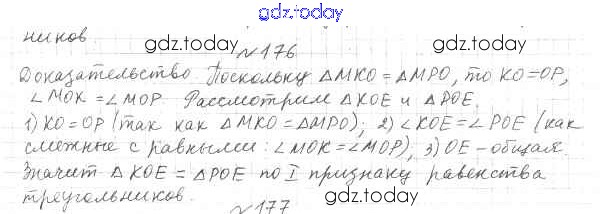 gdz.today
ников
gdz.today
№176
gdz.today
Доказательство. Поскольку ΔMKO = ΔMPO, то KO=OP,
∠MOK = ∠MOP. Рассмотрим ΔKOE и ΔPOE.
1) KO=OP (так как ΔMKO=ΔMPO); 2) ∠KOE=∠POE (как
смежные с равными: ∠MOK=∠MOP), 3) OE - общая.
Значит ΔKOE = ΔPOE по I признаку равенства
треугольников.
gdz.today
№177
gdz.today